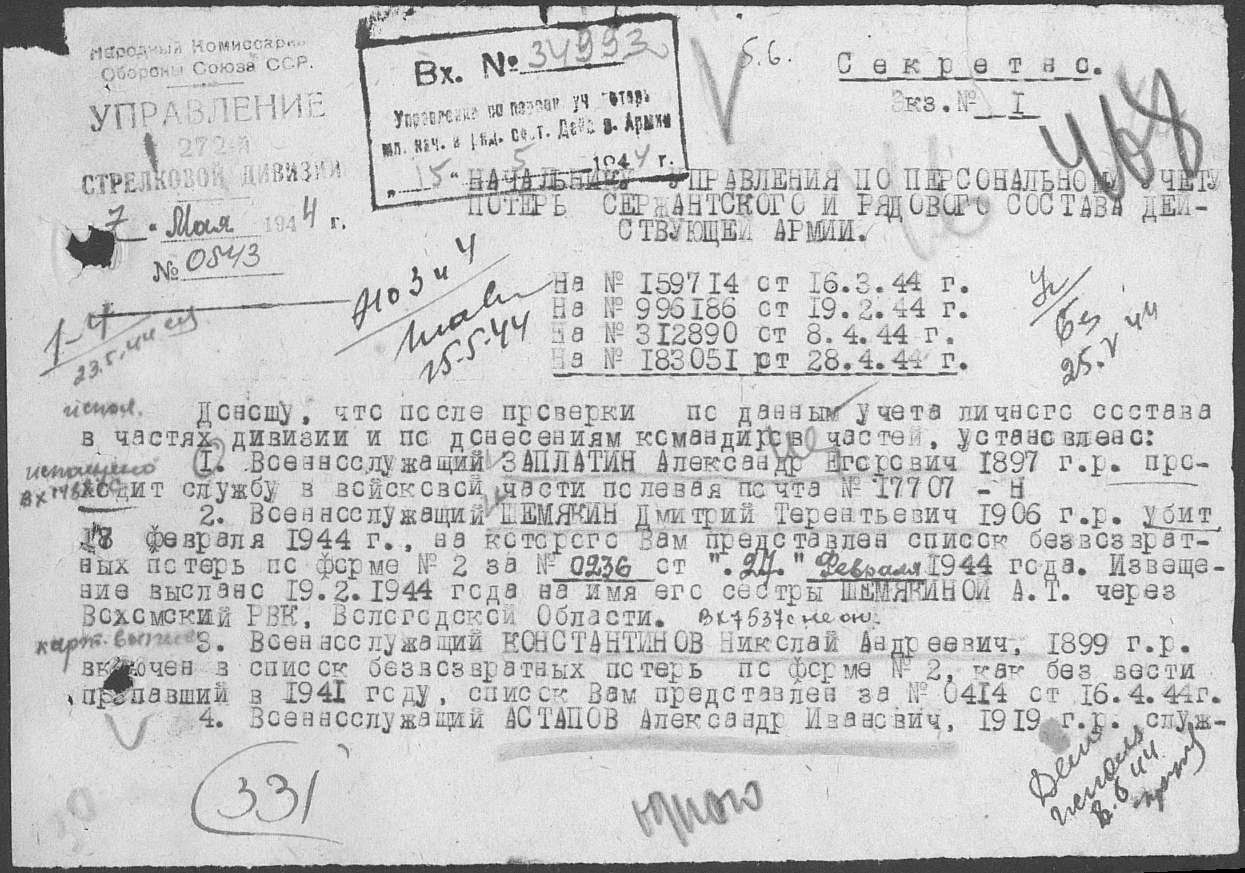 Народный Комиссариат
Обороны Союза ССР.
УПРАВЛЕНИЕ
272-й
СТРЕЛКОВОЙ ДИВИЗИИ
7 " Мая 1944 г.
№ 0543
Вх. № 34993
Управление по персон. уч. потерь
мл. нач. и ряд. сост. Армии
„ 15 " 5 1944 г.
5.6.
Секретно.
Экз.№ 1
468
НАЧАЛЬНИКУ УПРАВЛЕНИЯ ПО ПЕРСОНАЛЬНОМУ УЧЕТУ
ПОТЕРЬ СЕРЖАНТСКОГО И РЯДОВОГО СОСТАВА ДЕЙ-
СТВУЮЩЕЙ АРМИИ.
На № 159714 от 16.3.44 г.
На № 996186 от 19.2.44 г.
На № 312890 от 8.4.44 г.
На № 183051 рт 28.4.44 г.
1-4
23.5.44
По 3 и 4
25-5-44
25.V 44
испол.
Доношу, что после проверки по данным учета личного состава
в частях дивизии и по донесениям командиров частей, установлено:
1. Военнослужащий ЗАПЛАТИН Александр Егорович 1897 г.р. про-
ходит службу в войсковой части полевая почта № 17707 - Н
2. Военнослужащий ШЕМЯКИН Дмитрий Терентьевич 1906 г.р. убит
18 февраля 1944 г., на которого Вам представлен список безвозврат-
ных потерь по форме № 2 за № 0236 от ".27." Февраля 1944 года. Извеще-
ние выслано 19.2.1944 года на имя его сестры ШЕМЯКИНОЙ А.Т. через
Вохомский РВК, Вологодской Области. Вх7537с
3. Военнослужащий КОНСТАНТИНОВ Николай Андреевич, 1899 г.р.
включен в список безвозвратных потерь по форме № 2, как без вести
пропавший в 1941 году, список Вам представлен за № 0414 от 16.4.44г.
4. Военнослужащий АСТАПОВ Александр Иванович, 1919 г.р. служ-
331
8.6.44